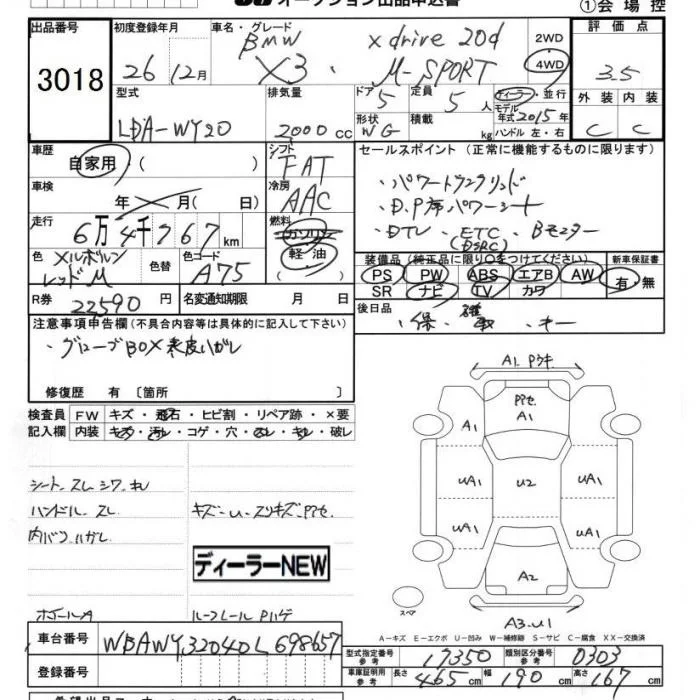 オークション出品申込書
①会場控
出品番号 3018
初度登録年月 26 12月
車名・グレード BMW X3 xdrive 20d M-SPORT
2WD 4WD
評価点 3.5
外装 C 内装 C
型式 LDA-WY20
排気量 2000cc
ドア 5 形状 WG
定員 5人
積載 kg
ディーラー・並行
モデル年式 2015年
ハンドル 左・右
車歴 自家用 ( )
シフト FAT
セールスポイント (正常に機能するものに限ります)
・パワートランクリッド
・D.P席パワーシート
・DTV、ETC(DSRC) Bモニター
車検 年 月( 日)
冷房 AAC
走行 6万4千767km
燃料 ガソリン 軽油
色 メルボルンレッドM
色替
色コード A75
装備品 (純正品に限り〇をつけてください)
PS PW ABS エアB AW
SR ナビ TV カワ
新車保証書 有・無
R券 22590円
名変通知期限 月 日
後日品
・保・取・キー
注意事項申告欄(不具合内容等は具体的に記入して下さい)
・グローブBOX表皮ハガレ
修復歴 有〔箇所 〕
検査員記入欄
FW キズ・飛石・ヒビ割・リペア跡・×要
内装 キズ・汚レ・コゲ・穴・スレ・キレ・破レ
シート、スレ、シワ、キレ
ハンドル、スレ
内バリハガレ
キズ、U、スリキズ、PPセ
ディーラーNEW
ルーフレールPハゲ
A1. Pウキ
PPセ A1
A1 A1
UA1 U2 UA1
UA1 UA1
A2
スペア
A3.U1
A-キズ E-エクボ U-凹み W-補修跡 S-サビ C-腐食 XX-交換済
車台番号 WBAWY32040L698657
登録番号
型式指定番号 参考 17350
類別区分番号 参考 0303
車庫証明用 参考 長さ 465cm 幅 190cm 高さ 167cm